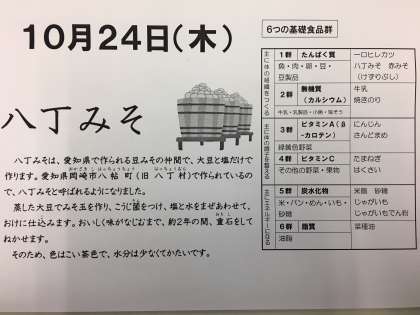 10月24日(木)
八丁みそ
八丁みそは、愛知県で作られる豆みその仲間で、大豆と塩だけで
作ります。愛知県岡崎市八帖町(旧 八丁村)で作られているの
で、八丁みそと呼ばれるようになりました。
蒸した大豆でみそ玉を作り、こうじ菌をつけ、塩と水をまぜあわせて、
おけに仕込みます。おいしく味がなじむまで、約2年の間、重石をして
ねかせます。
そのため、色はこい茶色で、水分は少なくてかたいです。
6つの基礎食品群
1群 たんぱく質
魚・肉・卵・豆・
豆製品
一口ヒレカツ
八丁みそ 赤みそ
(けずりぶし)
2群 無機質
(カルシウム)
牛乳・乳製品・小魚・海そう
牛乳
焼きのり
3群 ビタミンA(β
-カロテン)
緑黄色野菜
にんじん
さんどまめ
4群 ビタミンC
その他の野菜・果物
たまねぎ
はくさい
5群 炭水化物
米・パン・めん・いも・
砂糖
米飯 砂糖
じゃがいも
じゃがいもでん粉
6群 脂質
油脂
菜種油